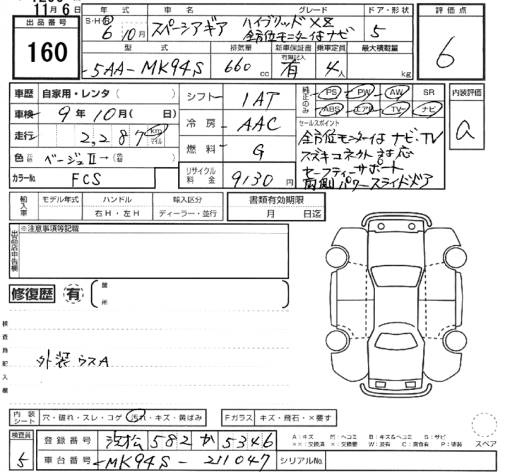 11月6日
出品番号
160
年式 車名 グレード ドア・形状
S・H・R 6年10月 スペーシアギア ハイブリッドXZ 全方位モニター付ナビ 5
型式 排気量 新車保証書 乗車定員 最大積載量
5AA-MK94S 660cc 有 4人 kg
評価点
6
車歴 自家用・レンタ( )
車検 9年10月( 日)
走行 2,287 km マイル
色 ベージュⅡ→(替)
カラーNo. FCS
シフト 1AT
冷房 AAC
燃料 G
リサイクル料金 9130円
純正のみ PS PW AW SR
ABS エアB TV ナビ
セールスポイント
全方位モニター付ナビ・TV
スズキコネクト対応
セーフティーサポート
両側パワースライドドア
内装評価
a
輸入車 モデル年式 ハンドル 輸入区分
年 右H・左H ディーラー・並行
書類有効期限
月 日迄
出品店申告欄
※注意事項等記載
修復歴 有
箇所
検査員記入欄
外装ウスA
内装シート 穴・破れ・スレ・コゲ 汚れ・キズ・黄ばみ
Fガラス キズ・飛石・×要す
A:キズ U:ヘコミ B:キズ&ヘコミ S:サビ
××:交換済 ×:交換要 W:波有 C:腐食有 P:塗装
スペア
検査員 5
登録番号 浜松 582 か 5346
車台番号 MK94S-211047 シリアルNo.